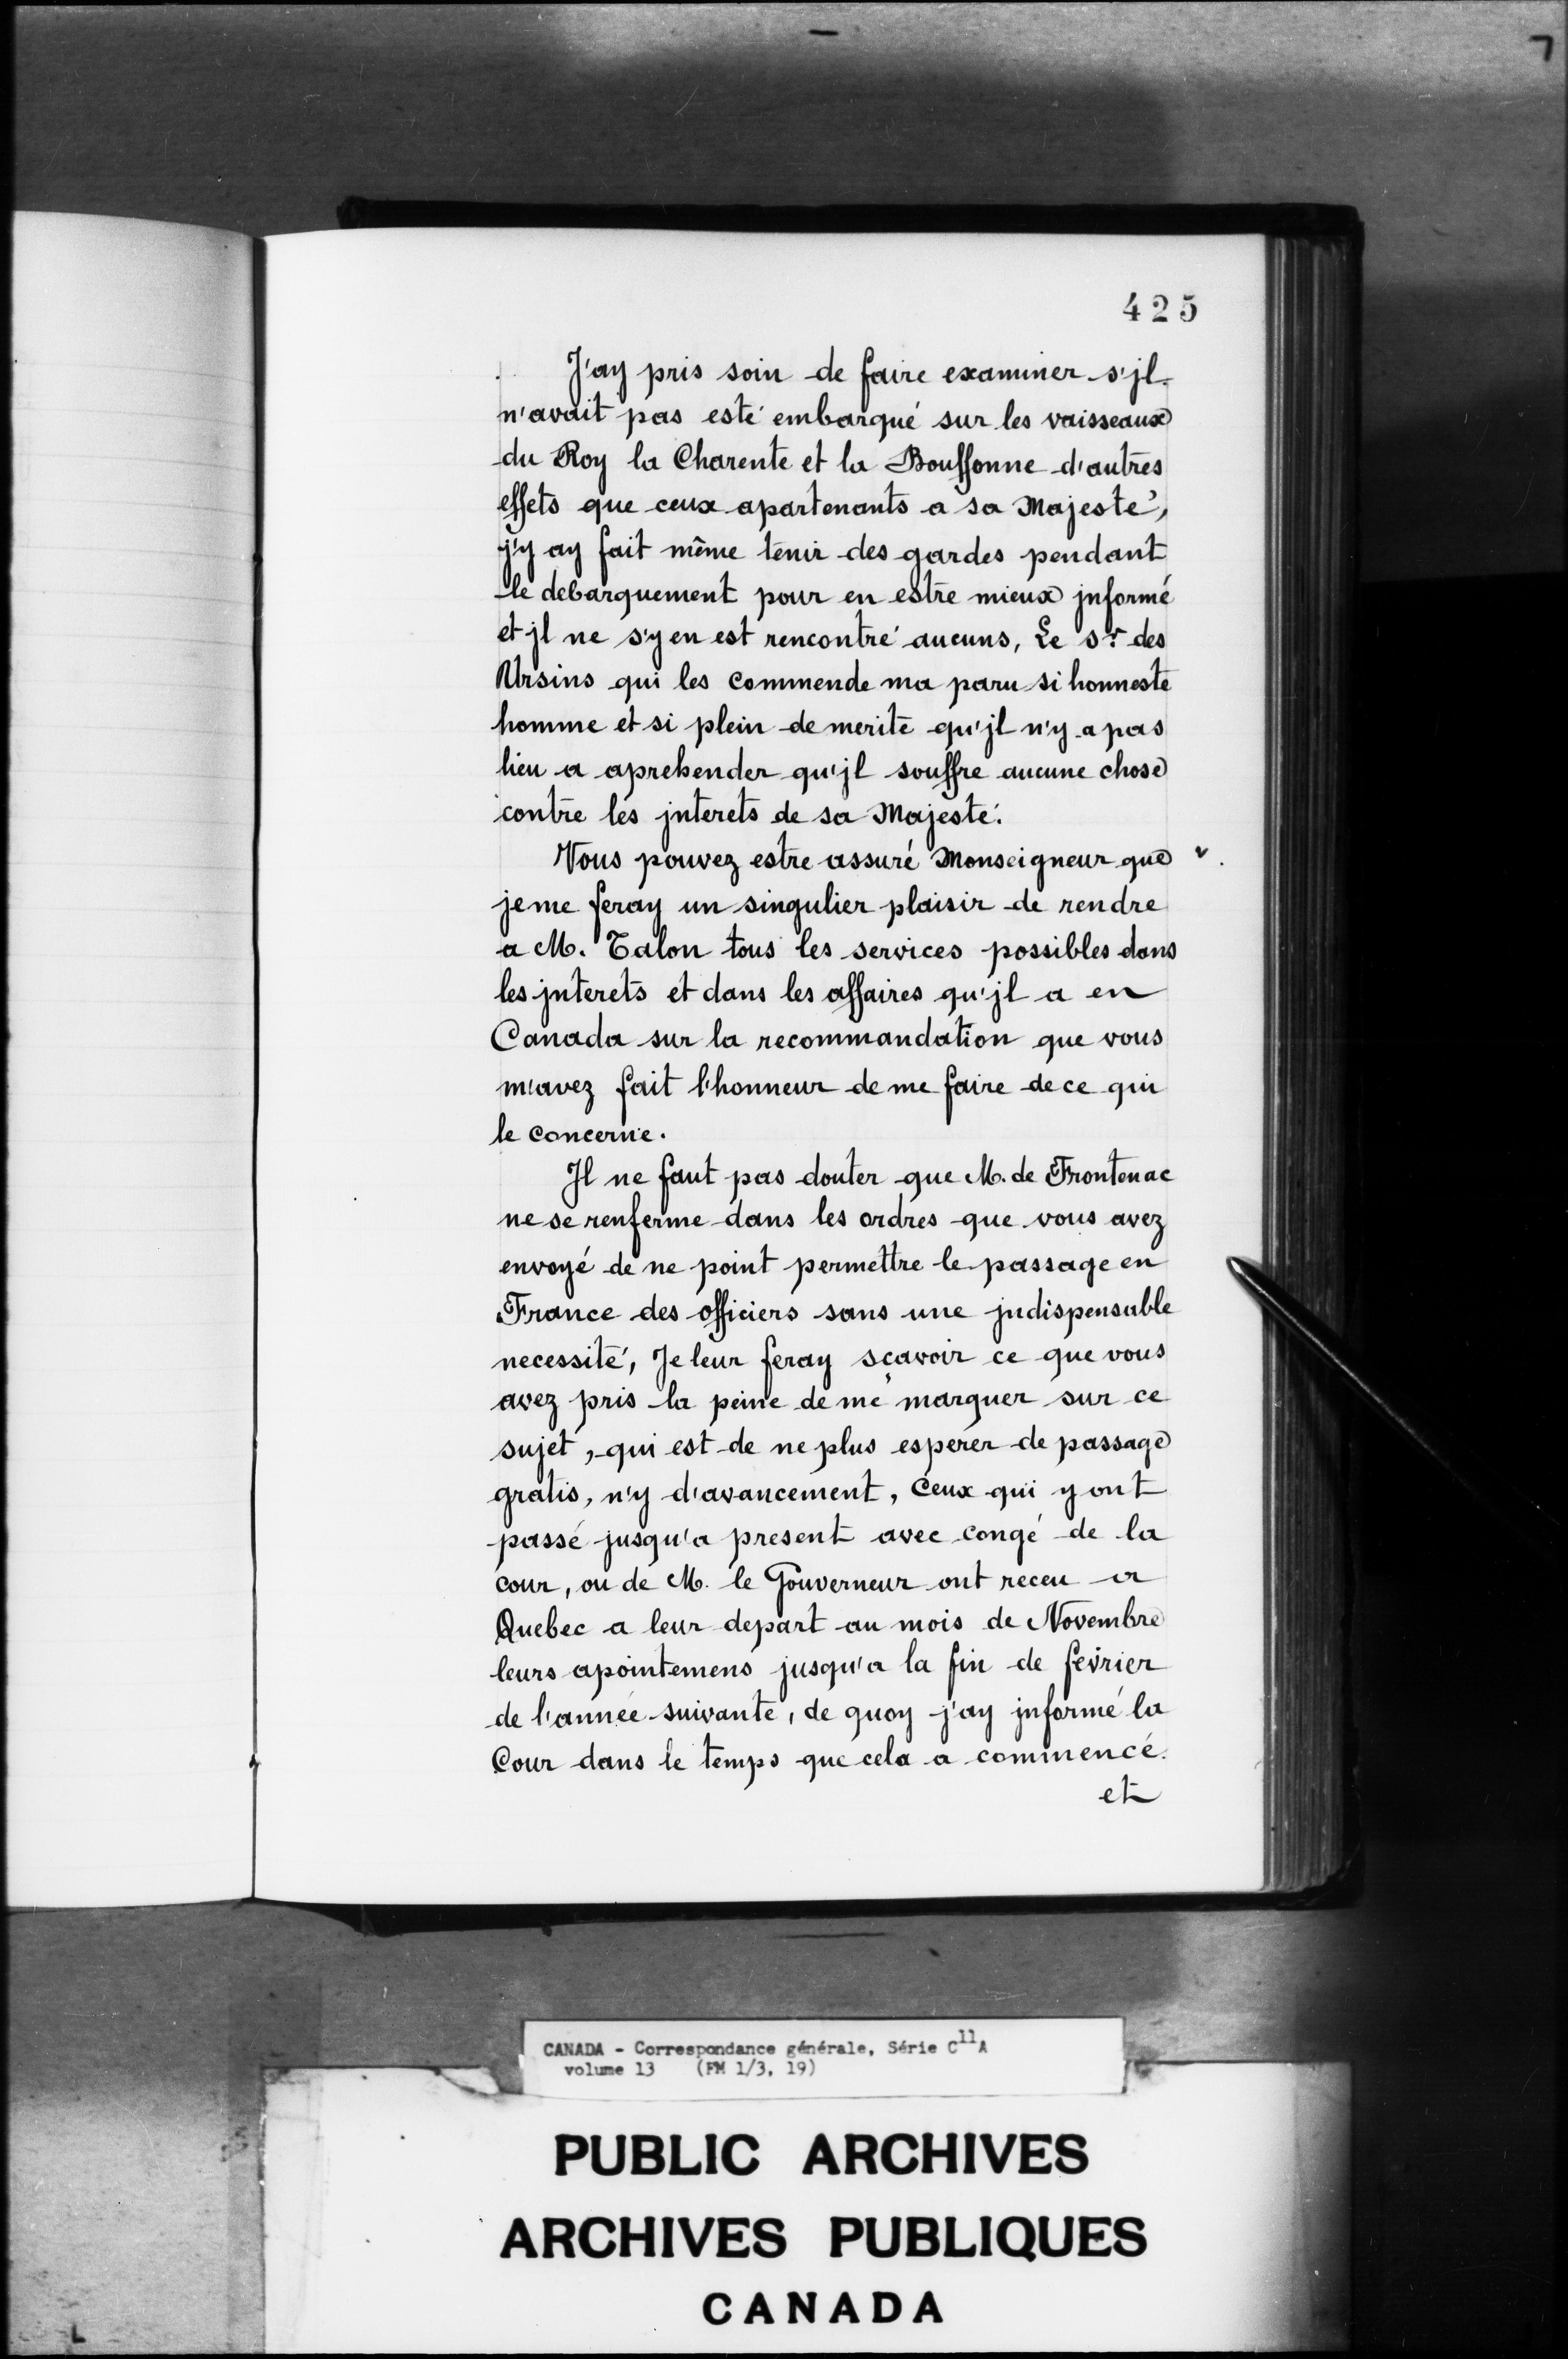 425
J'ay pris soin de faire examiner s'jl
n'avait pas esté embarqué sur les vaisseaux
du Roy la Charente et la Bouffonne d'autres
effets que ceux apartenants a sa Majesté,
j'y ay fait même tenir des gardes pendant
le debarquement pour en estre mieux jnformé
et jl ne s'y en est rencontré aucuns, Le Sr. des
Ursins qui les commende ma paru si honneste
homme et si plein de merite qu'jl n'y a pas
lieu a aprehender qu'jl souffre aucune chose
contre les jnterets de sa Majesté.
Vous pouvez estre assuré Monseigneur que
je me feray un singulier plaisir de rendre
a M. Talon tous les services possibles dans
les jnterets et dans les affaires qu'jl a en
Canada sur la recommandation que vous
m'avez fait l'honneur de me faire de ce qui
le concerne.
Il ne faut pas douter que M. de Frontenac
ne se renferme dans les ordres que vous avez
envoyé de ne point permettre le passage en
France des officiers sans une jndispensable
necessité, Je leur feray sçavoir ce que vous
avez pris la peine de me marquer sur ce
sujet, qui est de ne plus esperer de passage
gratis, n'y d'avancement, Ceux qui y ont
passé jusqu'a present avec congé de la
cour, ou de M. le Gouverneur ont receu a
Quebec a leur depart au mois de Novembre
leurs apointemens jusqu'a la fin de février
de l'année suivante, de quoy j'ay jnformé la
Cour dans le temps que cela a commencé.
et
CANADA - Correspondance générale, Série C11A
volume 13 (FM 1/3, 19)
PUBLIC ARCHIVES
ARCHIVES PUBLIQUES
CANADA